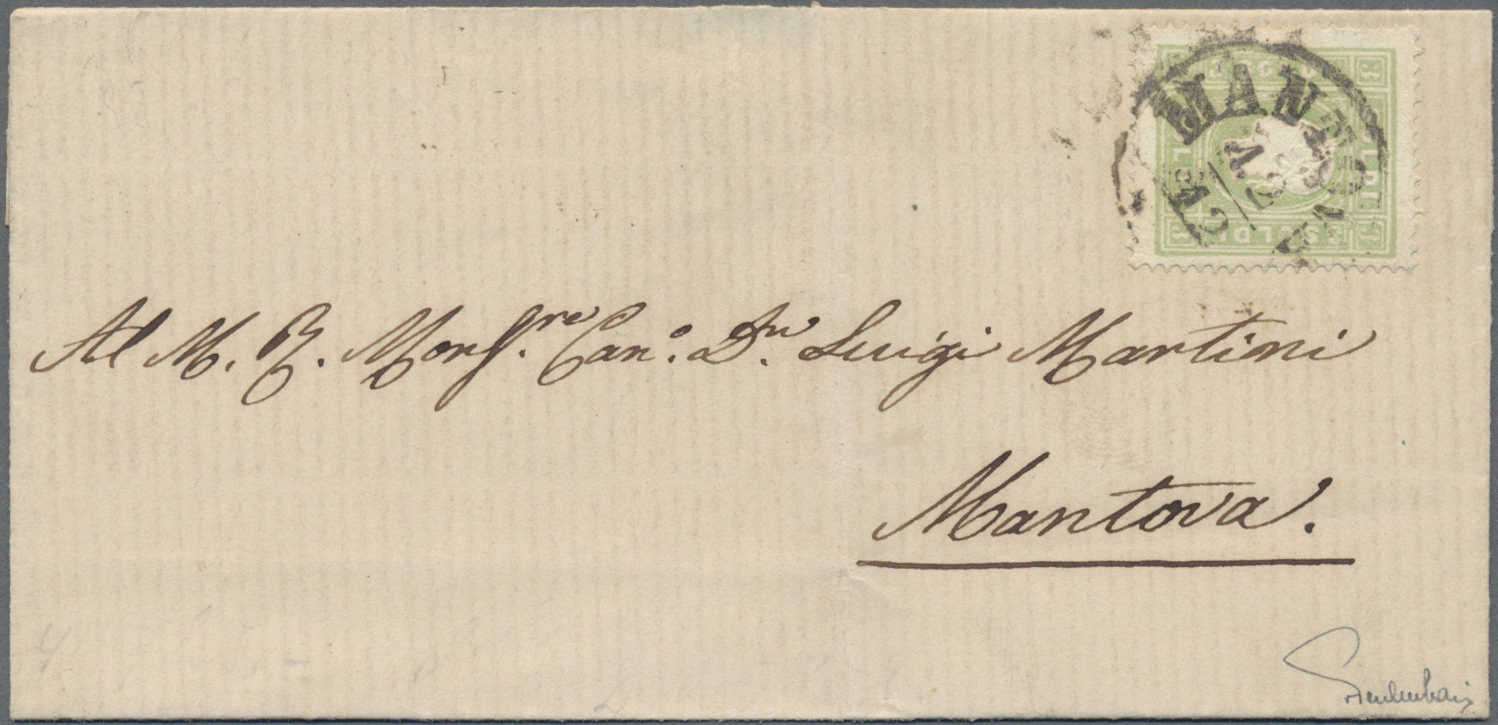 MANTOVA
3 SOLDI
Al M. R. Monsre. Cano. Dn. Luigi Martini
Mantova.